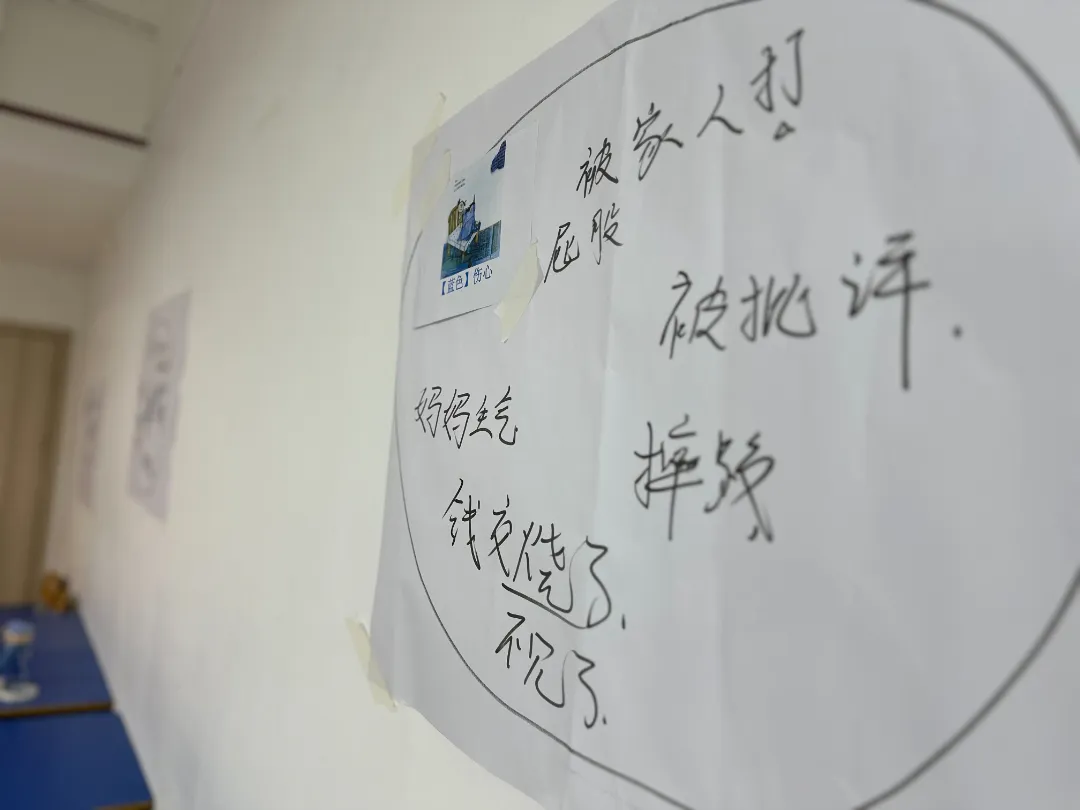 被家人打
屁股
【蓝色】伤心
被批评.
妈妈生气
摔跤
钱变偧了.
不见了.